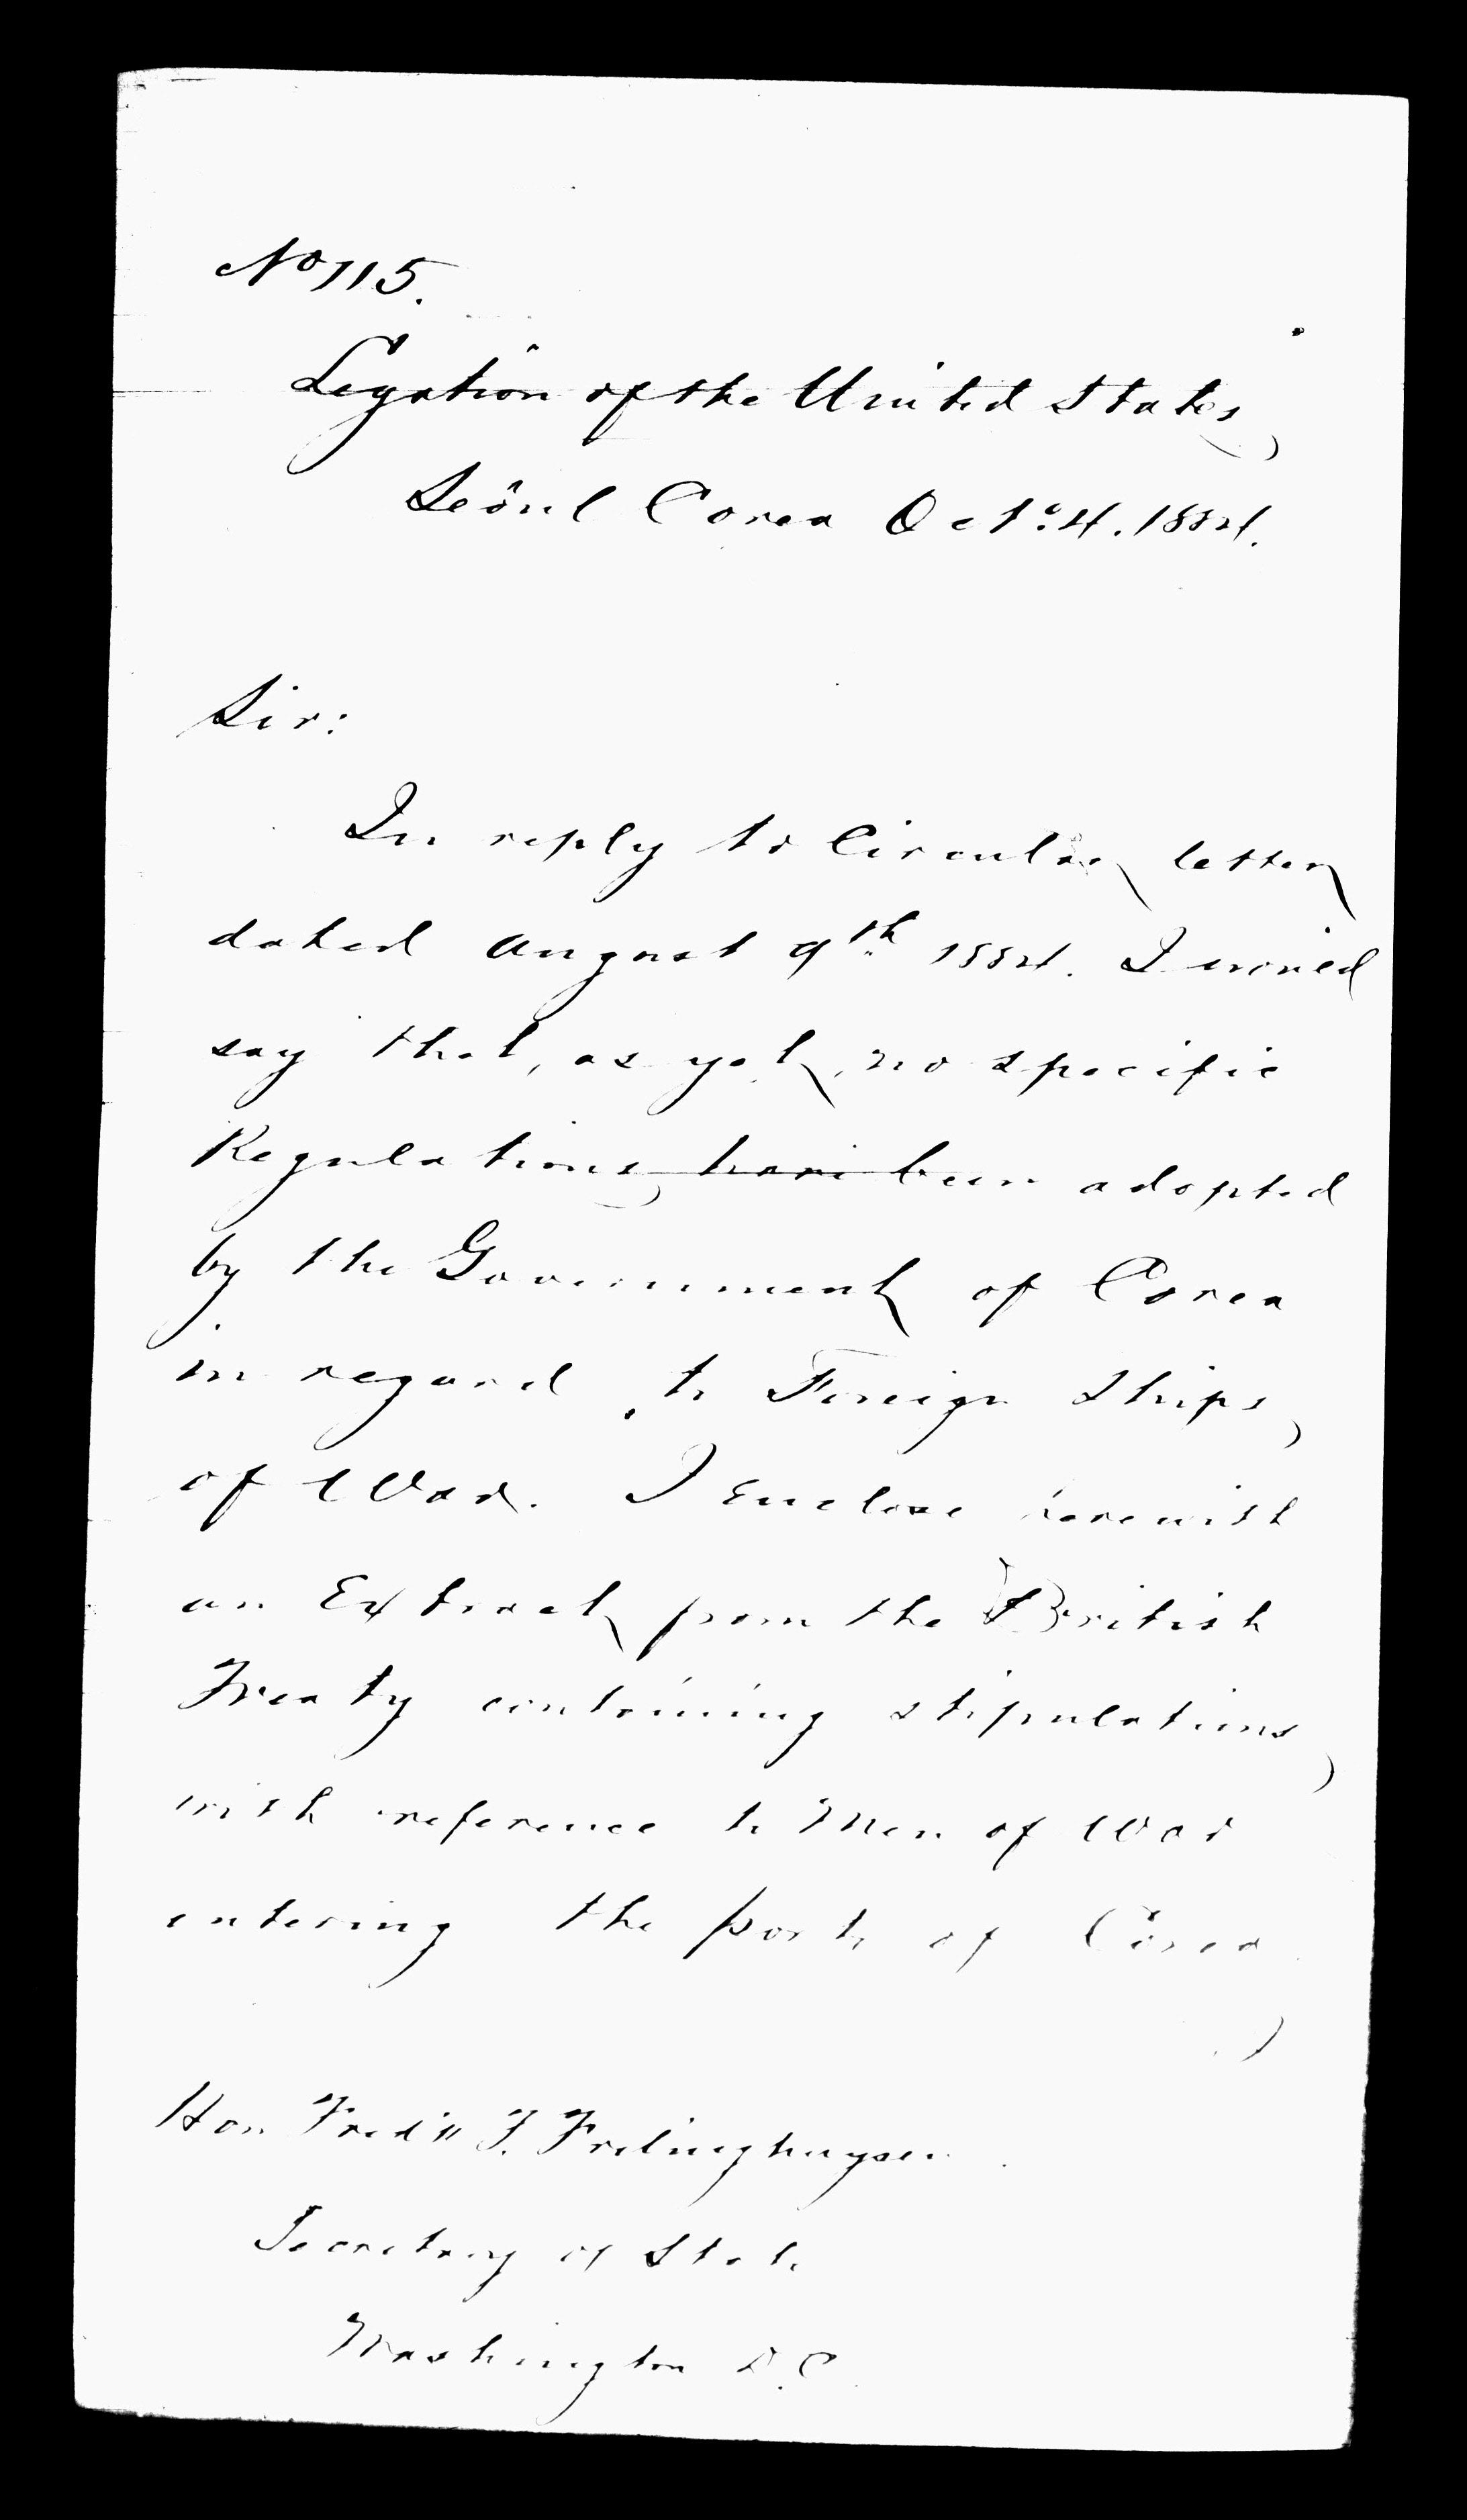 No 115.
Legation of the United States,
Seoul Corea Oct. 4. 1884.
Sir:
In reply to Circular letter
dated August 9th 1884. I would
say that, as yet, no specific
Regulations have been adopted
by the Government of Corea
in regard to Foreign Ships
of War. I Enclose herewith
an Extract from the British
Treaty containing stipulations
with reference to Men of War
entering the ports of Corea.
Hon Fred'k F. Frelinghuysen.
Secretary of State
Washington D.C.